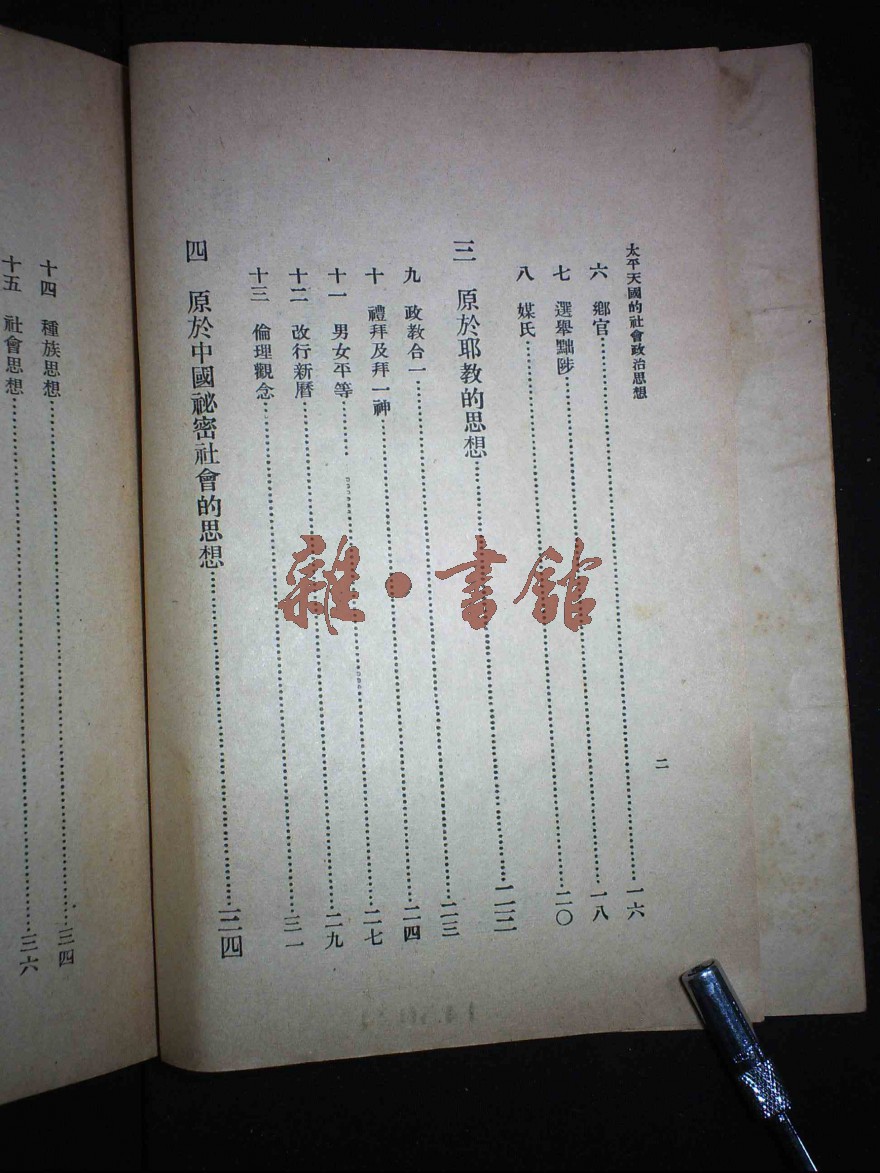 太平天國的社會政治思想
二
六 鄉官……一六
七 選舉黜陟……一八
八 媒氏……二〇
三 原於耶教的思想……二三
九 政教合一……二三
十 禮拜及拜一神……二四
十一 男女平等……二七
十二 改行新曆……二九
十三 倫理觀念……三一
四 原於中國祕密社會的思想……三四
十四 種族思想……三四
十五 社會思想……三六
雜·書館